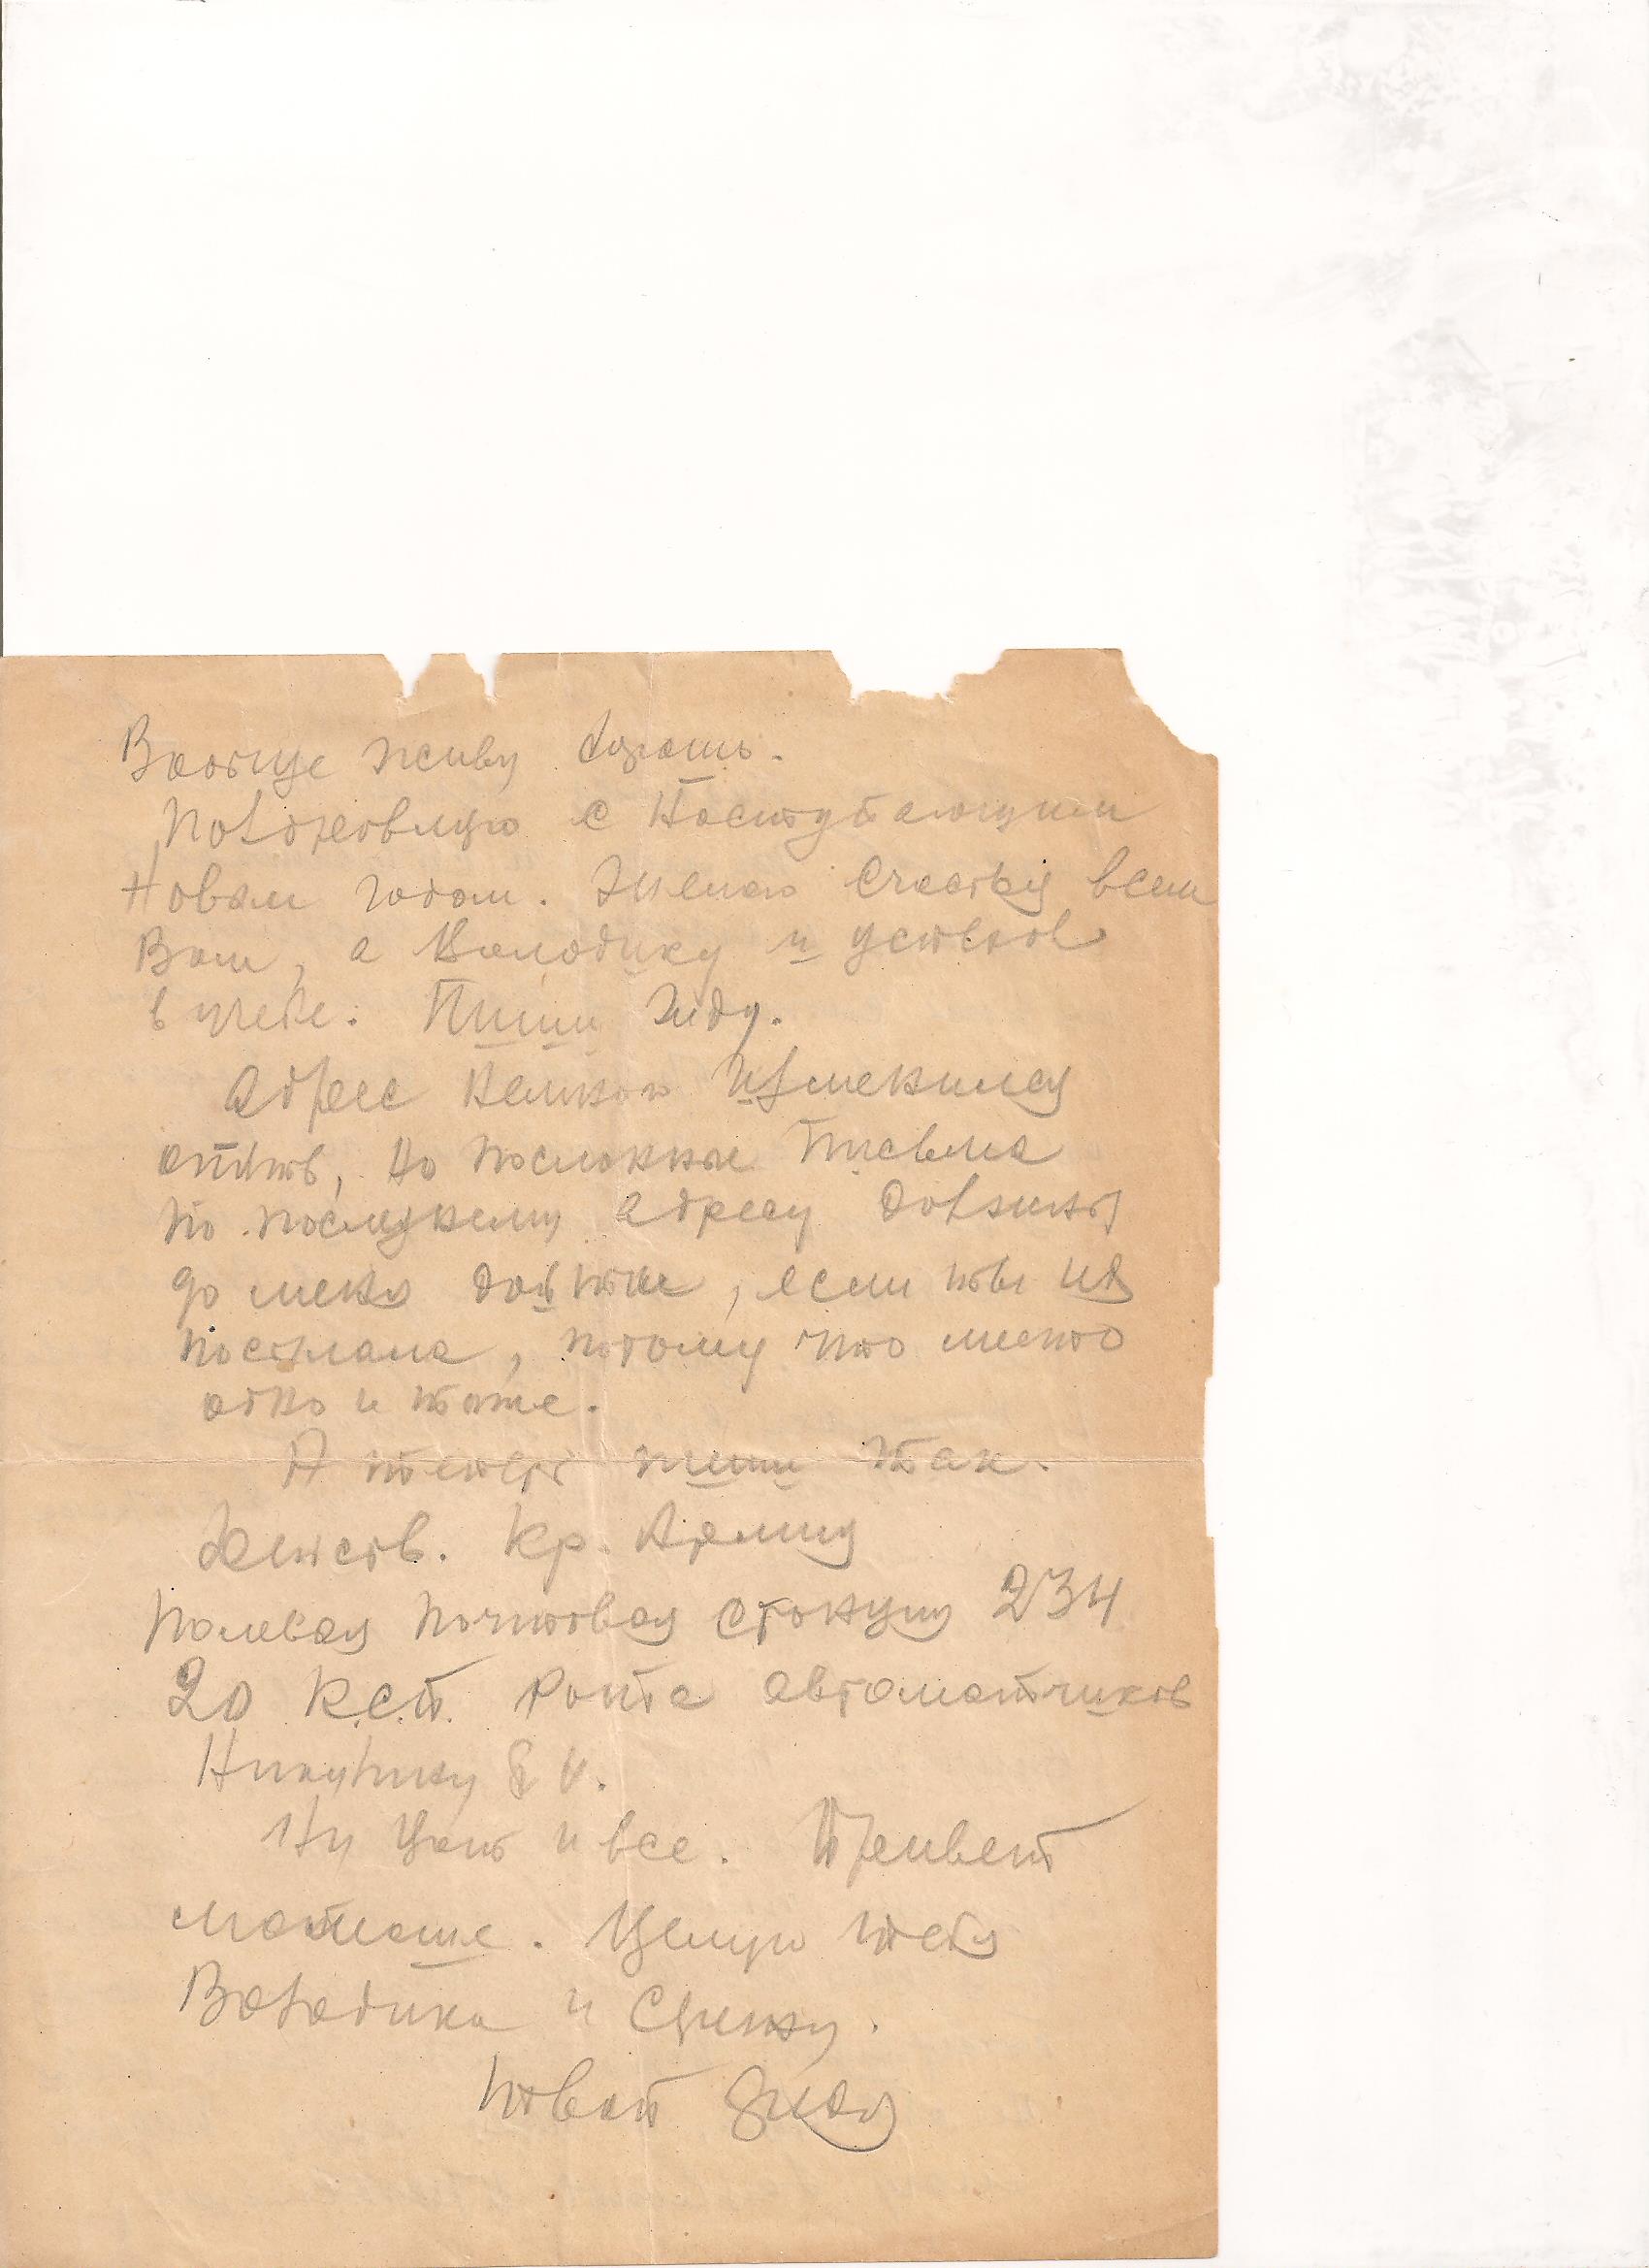 Вообще живу хорошо.
Поздравляю с Наступающим
Новым годом. Желаю счастья всем
Вам, а Володику и успехов
в учебе. Пиши Жду.
Адрес немного изменился
опять, но посланные письма
по последнему адресу должны
до меня дойти, если ты их
послала, потому что место
одно и тоже.
А теперь пиши так.
Действ. Кр. Армия
Полевая почтовая станция 234
20 К.С.П. рота автоматчиков
Никулину
Ну вот и все. Привет
мамаше. Целую тебя
Володика и
твой